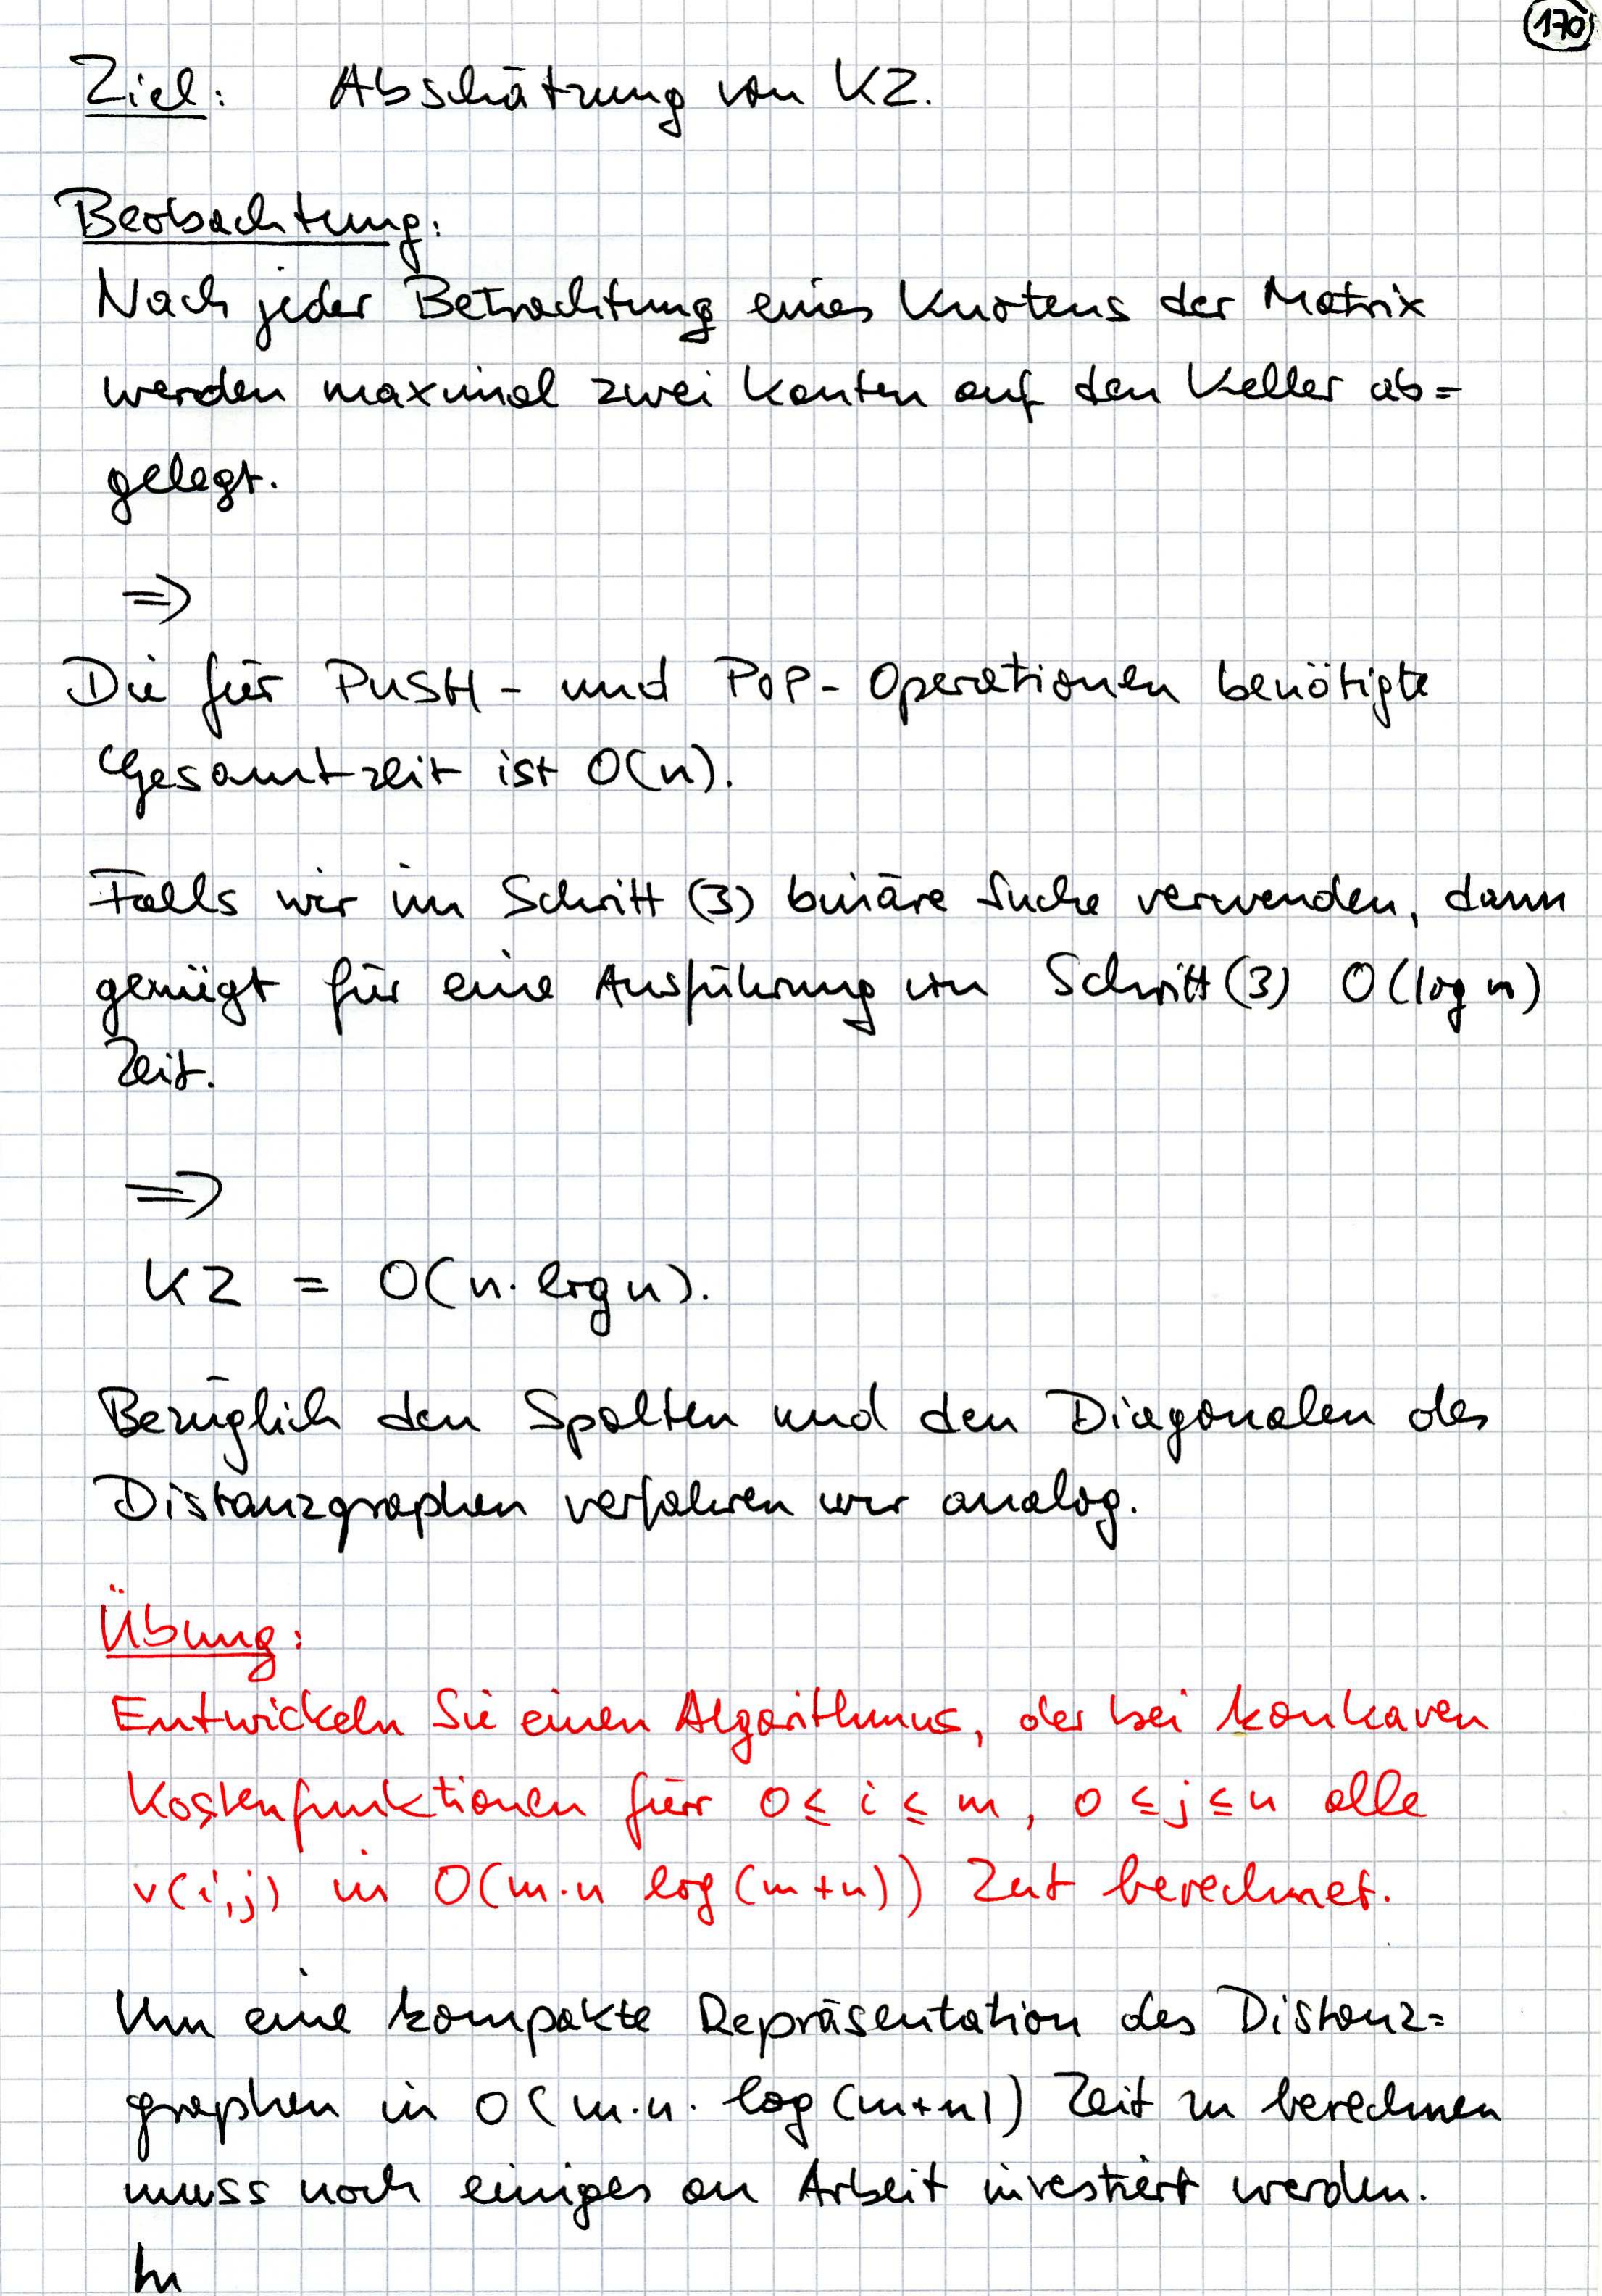 170
Ziel: Abschätzung von KZ.
Beobachtung:
Nach jeder Betrachtung eines Knotens der Matrix
werden maximal zwei Kanten auf den Keller ab=
gelegt.
⇒
Die für PUSH- und POP-Operationen benötigte
Gesamtzeit ist O(n).
Falls wir im Schritt (3) binäre Suche verwenden, dann
genügt für eine Ausführung von Schritt (3) O(log n)
Zeit.
⇒
KZ = O(n·log n).
Bezüglich den Spalten und den Diagonalen des
Distanzgraphen verfahren wir analog.
Übung:
Entwickeln Sie einen Algorithmus, der bei konkaven
Kostenfunktionen für 0 ≤ i ≤ m, 0 ≤ j ≤ n alle
v(i,j) in O(m·n log(m+n)) Zeit berechnet.
Um eine kompakte Repräsentation des Distanz=
graphen in O(m·n·log(m+n)) Zeit zu berechnen
muss noch einiges an Arbeit investiert werden.
In